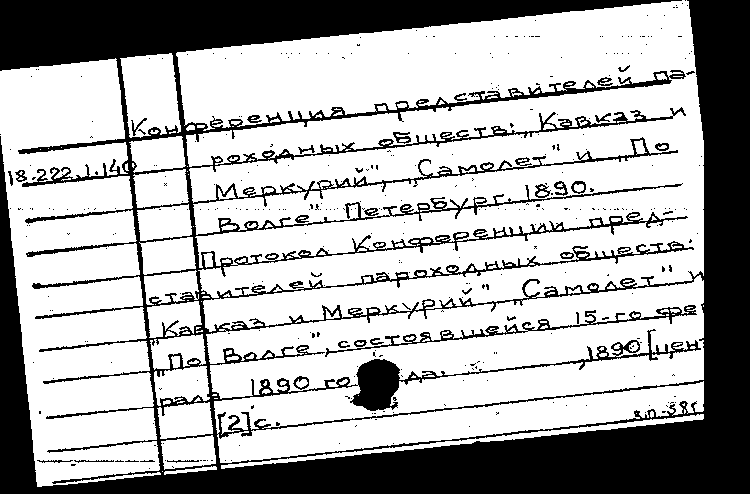 Конференция представителей па-
18.222.1.140 роходных обществ: „Кавказ и
Меркурий", „Самолет" и „По
Волге". Петербург. 1890.
Протокол Конференции пред-
ставителей пароходных обществ:
„Кавказ и Меркурий", „Самолет" и
„По Волге", состоявшейся 15-го фев
раля 1890 года. ,1890 [ценз
[2] с.